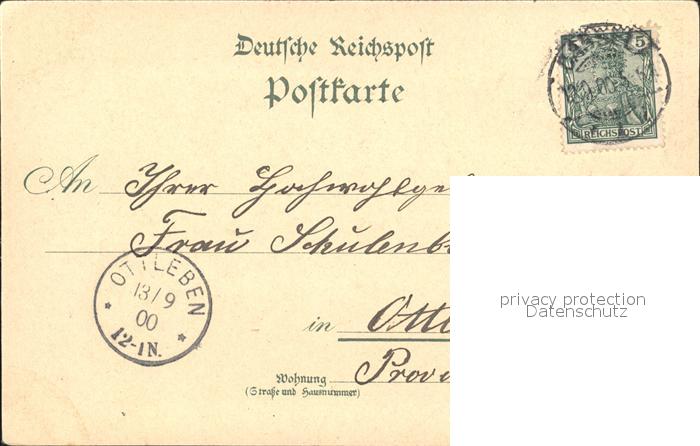 Deutsche Reichspost
Postkarte
5
REICHSPOST
An Ihrer Hochwohlge
Frau Schulenb
OTTLEBEN
13/9
00
12-1N.
in Ott
Wohnung Prov
(Straße und Hausnummer)
privacy protection
Datenschutz